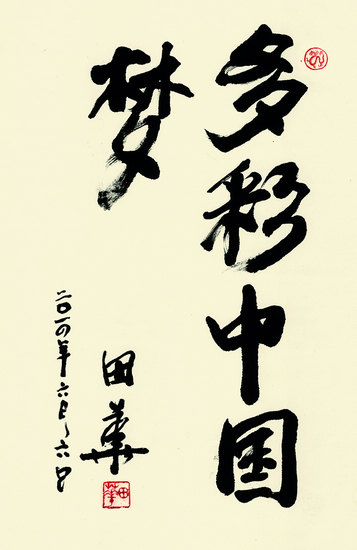 多彩中国
梦
田華
二〇一四年六月六日
田華